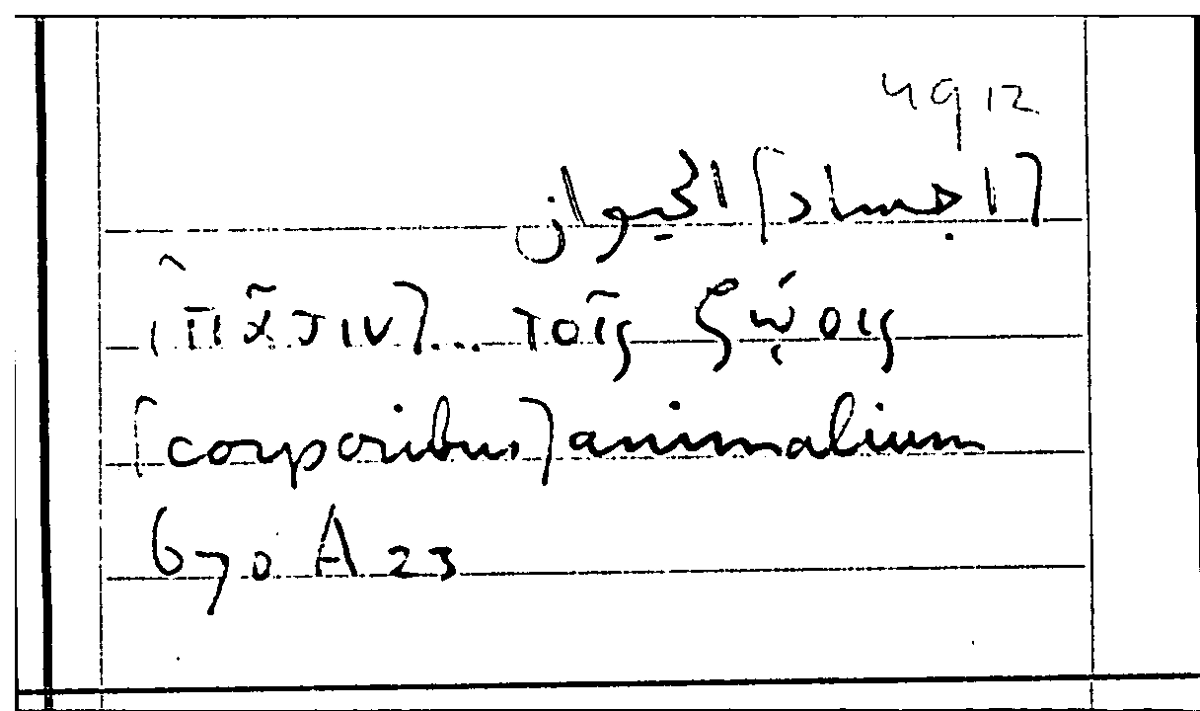 49 12
[اجساد] الحيوان
[πᾶσιν]... τοῖς ζῴοις
[corporibus] animalium
670 A 23